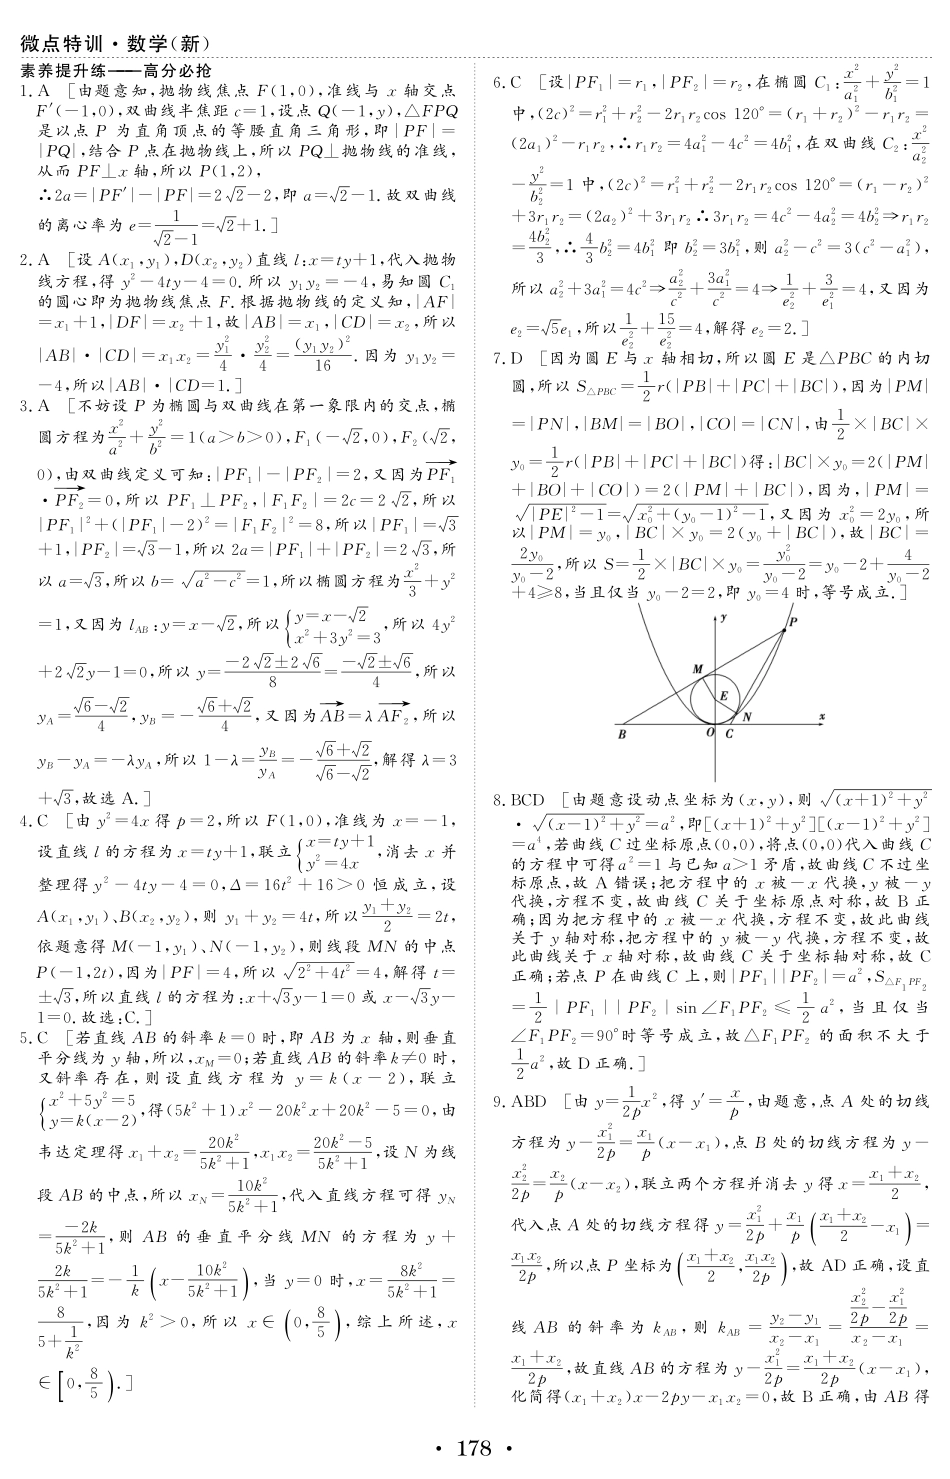 微点特训·数学(新)
素养提升练——高分必抢
1. A [由题意知,抛物线焦点 F(1,0),准线与 x 轴交点
F′(-1,0),双曲线半焦距 c=1,设点 Q(-1,y),△FPQ
是以点 P 为直角顶点的等腰直角三角形,即|PF|=
|PQ|,结合 P 点在抛物线上,所以 PQ⊥抛物线的准线,
从而 PF⊥x 轴,所以 P(1,2),
∴2a=|PF′|-|PF|=2√2-2,即 a=√2-1.故双曲线
的离心率为 e=1/(√2-1)=√2+1.]
2. A [设 A(x₁,y₁),D(x₂,y₂)直线 l:x=ty+1,代入抛物
线方程,得 y²-4ty-4=0.所以 y₁y₂=-4,易知圆 C₁
的圆心即为抛物线焦点 F.根据抛物线的定义知,|AF|
=x₁+1,|DF|=x₂+1,故|AB|=x₁,|CD|=x₂,所以
|AB|·|CD|=x₁x₂=y₁²/4·y₂²/4=(y₁y₂)²/16.因为 y₁y₂=
-4,所以|AB|·|CD=1.]
3. A [不妨设 P 为椭圆与双曲线在第一象限内的交点,椭
圆方程为x²/a²+y²/b²=1(a>b>0),F₁(-√2,0),F₂(√2,
0),由双曲线定义可知:|PF₁|-|PF₂|=2,又因为PF₁→
·PF₂→=0,所以 PF₁⊥PF₂,|F₁F₂|=2c=2√2,所以
|PF₁|²+(|PF₁|-2)²=|F₁F₂|²=8,所以|PF₁|=√3
+1,|PF₂|=√3-1,所以 2a=|PF₁|+|PF₂|=2√3,所
以 a=√3,所以 b=√(a²-c²)=1,所以椭圆方程为x²/3+y²
=1,又因为 l_AB:y=x-√2,所以{y=x-√2, x²+3y²=3,所以 4y²
+2√2y-1=0,所以 y=(-2√2±2√6)/8=(-√2±√6)/4,所以
y_A=(√6-√2)/4,y_B=-(√6+√2)/4,又因为AB→=λAF₂→,所以
y_B-y_A=-λy_A,所以 1-λ=y_B/y_A=-(√6+√2)/(√6-√2),解得 λ=3
+√3,故选 A.]
4. C [由 y²=4x 得 p=2,所以 F(1,0),准线为 x=-1,
设直线 l 的方程为 x=ty+1,联立{x=ty+1, y²=4x,消去 x 并
整理得 y²-4ty-4=0,Δ=16t²+16>0 恒成立,设
A(x₁,y₁)、B(x₂,y₂),则 y₁+y₂=4t,所以(y₁+y₂)/2=2t,
依题意得 M(-1,y₁)、N(-1,y₂),则线段 MN 的中点
P(-1,2t),因为|PF|=4,所以√(2²+4t²)=4,解得 t=
±√3,所以直线 l 的方程为:x+√3y-1=0 或 x-√3y-
1=0.故选:C.]
5. C [若直线 AB 的斜率 k=0 时,即 AB 为 x 轴,则垂直
平分线为 y 轴,所以,x_M=0;若直线 AB 的斜率k≠0 时,
又斜率存在,则设直线方程为 y=k(x-2),联立
{x²+5y²=5, y=k(x-2),得(5k²+1)x²-20k²x+20k²-5=0,由
韦达定理得 x₁+x₂=20k²/(5k²+1),x₁x₂=(20k²-5)/(5k²+1),设 N 为线
段 AB 的中点,所以 x_N=10k²/(5k²+1),代入直线方程可得 y_N
=-2k/(5k²+1),则 AB 的垂直平分线 MN 的方程为 y+
2k/(5k²+1)=-1/k(x-10k²/(5k²+1)),当 y=0 时,x=8k²/(5k²+1)=
8/(5+1/k²),因为 k²>0,所以 x∈(0,8/5),综上所述,x
∈[0,8/5).]
6. C [设|PF₁|=r₁,|PF₂|=r₂,在椭圆 C₁:x²/a₁²+y²/b₁²=1
中,(2c)²=r₁²+r₂²-2r₁r₂cos 120°=(r₁+r₂)²-r₁r₂=
(2a₁)²-r₁r₂,∴r₁r₂=4a₁²-4c²=4b₁²,在双曲线 C₂:x²/a₂²
-y²/b₂²=1 中,(2c)²=r₁²+r₂²-2r₁r₂cos 120°=(r₁-r₂)²
+3r₁r₂=(2a₂)²+3r₁r₂∴3r₁r₂=4c²-4a₂²=4b₂²⇒r₁r₂
=4b₂²/3,∴4/3b₂²=4b₁² 即 b₂²=3b₁²,则 a₂²-c²=3(c²-a₁²),
所以 a₂²+3a₁²=4c²⇒a₂²/c²+3a₁²/c²=4⇒1/e₂²+3/e₁²=4,又因为
e₂=√5e₁,所以1/e₂²+15/e₂²=4,解得 e₂=2.]
7. D [因为圆 E 与 x 轴相切,所以圆 E 是△PBC 的内切
圆,所以 S△PBC=1/2r(|PB|+|PC|+|BC|),因为|PM|
=|PN|,|BM|=|BO|,|CO|=|CN|,由1/2×|BC|×
y₀=1/2r(|PB|+|PC|+|BC|)得:|BC|×y₀=2(|PM|
+|BO|+|CO|)=2(|PM|+|BC|),因为,|PM|=
√(|PE|²-1)=√(x₀²+(y₀-1)²-1),又因为 x₀²=2y₀,所
以|PM|=y₀,|BC|×y₀=2(y₀+|BC|),故|BC|=
2y₀/(y₀-2),所以 S=1/2×|BC|×y₀=y₀²/(y₀-2)=y₀-2+4/(y₀-2)
+4≥8,当且仅当 y₀-2=2,即 y₀=4 时,等号成立.]
y
P
M
E
N
B
O
C
x
8. BCD [由题意设动点坐标为(x,y),则 √((x+1)²+y²)
·√((x-1)²+y²)=a²,即[(x+1)²+y²][(x-1)²+y²]
=a⁴,若曲线 C 过坐标原点(0,0),将点(0,0)代入曲线 C
的方程中可得 a²=1 与已知 a>1 矛盾,故曲线 C 不过坐
标原点,故 A 错误;把方程中的 x 被-x 代换,y 被-y
代换,方程不变,故曲线 C 关于坐标原点对称,故 B 正
确;因为把方程中的 x 被-x 代换,方程不变,故此曲线
关于 y 轴对称,把方程中的 y 被-y 代换,方程不变,故
此曲线关于 x 轴对称,故曲线 C 关于坐标轴对称,故 C
正确;若点 P 在曲线 C 上,则|PF₁||PF₂|=a²,S△F₁PF₂
=1/2|PF₁||PF₂|sin∠F₁PF₂≤1/2a²,当且仅当
∠F₁PF₂=90°时等号成立,故△F₁PF₂ 的面积不大于
1/2a²,故 D 正确.]
9. ABD [由 y=1/2p x²,得 y′=x/p,由题意,点 A 处的切线
方程为 y-x₁²/2p=x₁/p(x-x₁),点 B 处的切线方程为 y-
x₂²/2p=x₂/p(x-x₂),联立两个方程并消去 y 得 x=(x₁+x₂)/2,
代入点 A 处的切线方程得 y=x₁²/2p+x₁/p((x₁+x₂)/2-x₁)=
x₁x₂/2p,所以点 P 坐标为((x₁+x₂)/2,x₁x₂/2p),故 AD 正确,设直
线 AB 的斜率为 k_AB,则 k_AB=(y₂-y₁)/(x₂-x₁)=(x₂²/2p-x₁²/2p)/(x₂-x₁)=
(x₁+x₂)/2p,故直线 AB 的方程为 y-x₁²/2p=(x₁+x₂)/2p(x-x₁),
化简得(x₁+x₂)x-2py-x₁x₂=0,故 B 正确,由 AB 得
· 178 ·